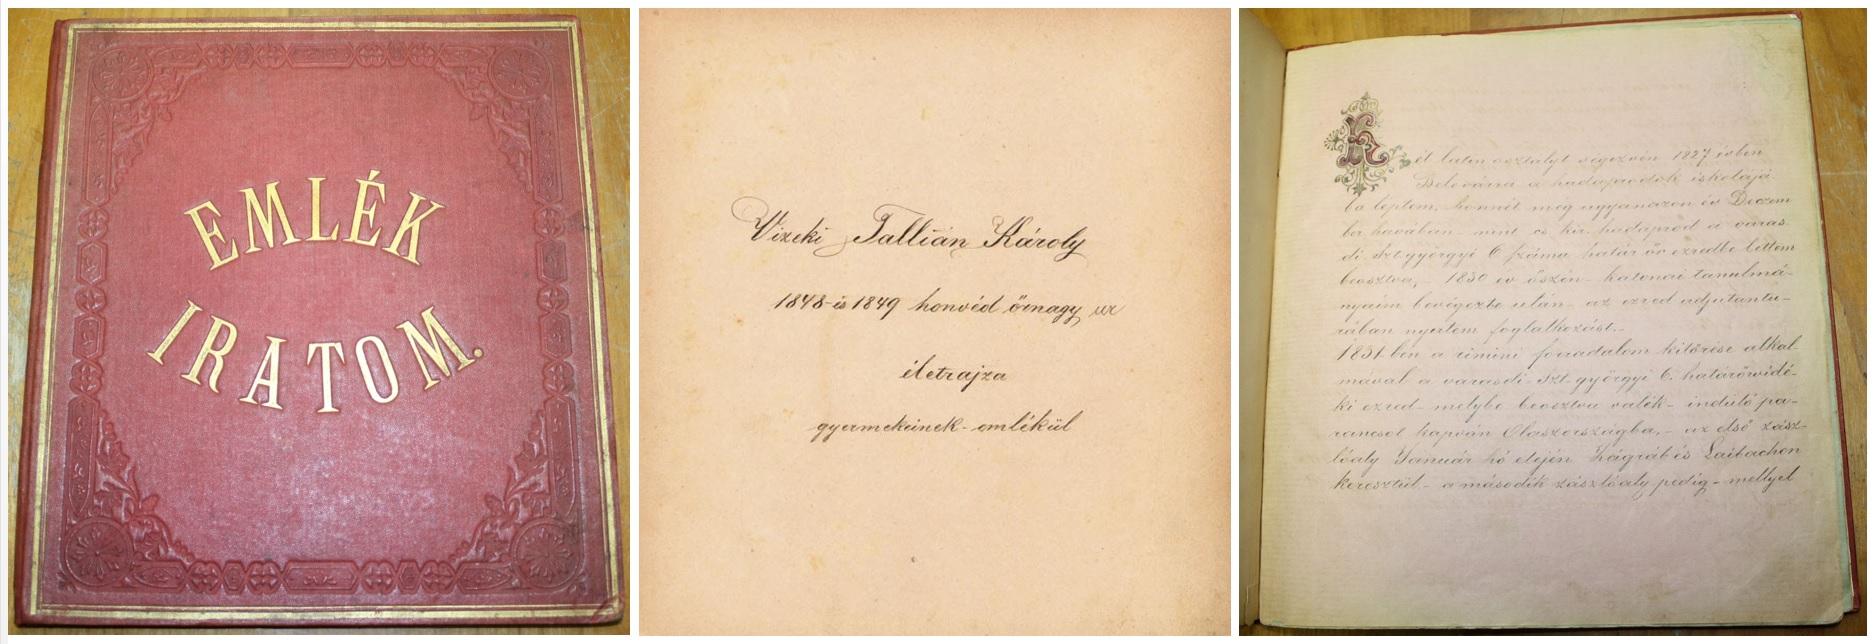 EMLÉK
IRATOM.
Vizeki Tallián Károly
1848-is 1849 honvéd őrnagy ur
életrajza
gyermekeinek- emlékül
Két latin osztályt végezvén 1827 évben
Belovárra a hadapródok iskolájá-
ba léptem, honnét még ugyanazon év Decem
ber havában mint cs. kir. hadapród a varas-
di Szt. györgyi 6 számú határőr ezredbe lettem
beosztva,- 1830 év őszén- katonai tanulmá-
nyaim bevégezte után- az ezred adjutantu-
rában nyertem foglalkozást.-
1831-ben a rimini forradalom kitörése alkal-
mával a varasdi- Szt- györgyi 6. határőrvidé-
ki ezred- melybe beosztva valék- induló pa-
rancsot kapván Olaszországba,- az első zász-
lóaly Január hó elején Zágráb és Laibachon
keresztül- a második zászlóaly pedig- mellyel